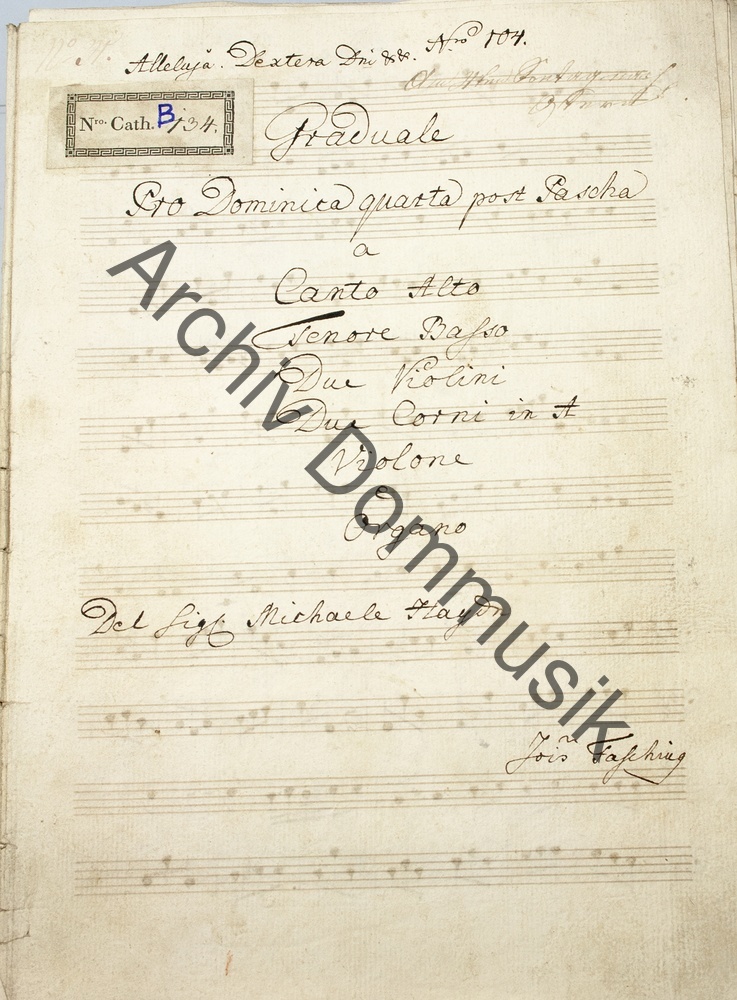 Alleluja. Dextera Dni &c &c. Nro 104.
Nro. Cath. B 134.
Graduale
Pro Dominica quarta post Pascha
a
Canto Alto
Tenore Basso
Due Violini
Due Corni in A
Violone
e
Organo
Del Sigl. Michaele Haydn
Jois Fasching
Archiv Dommusik